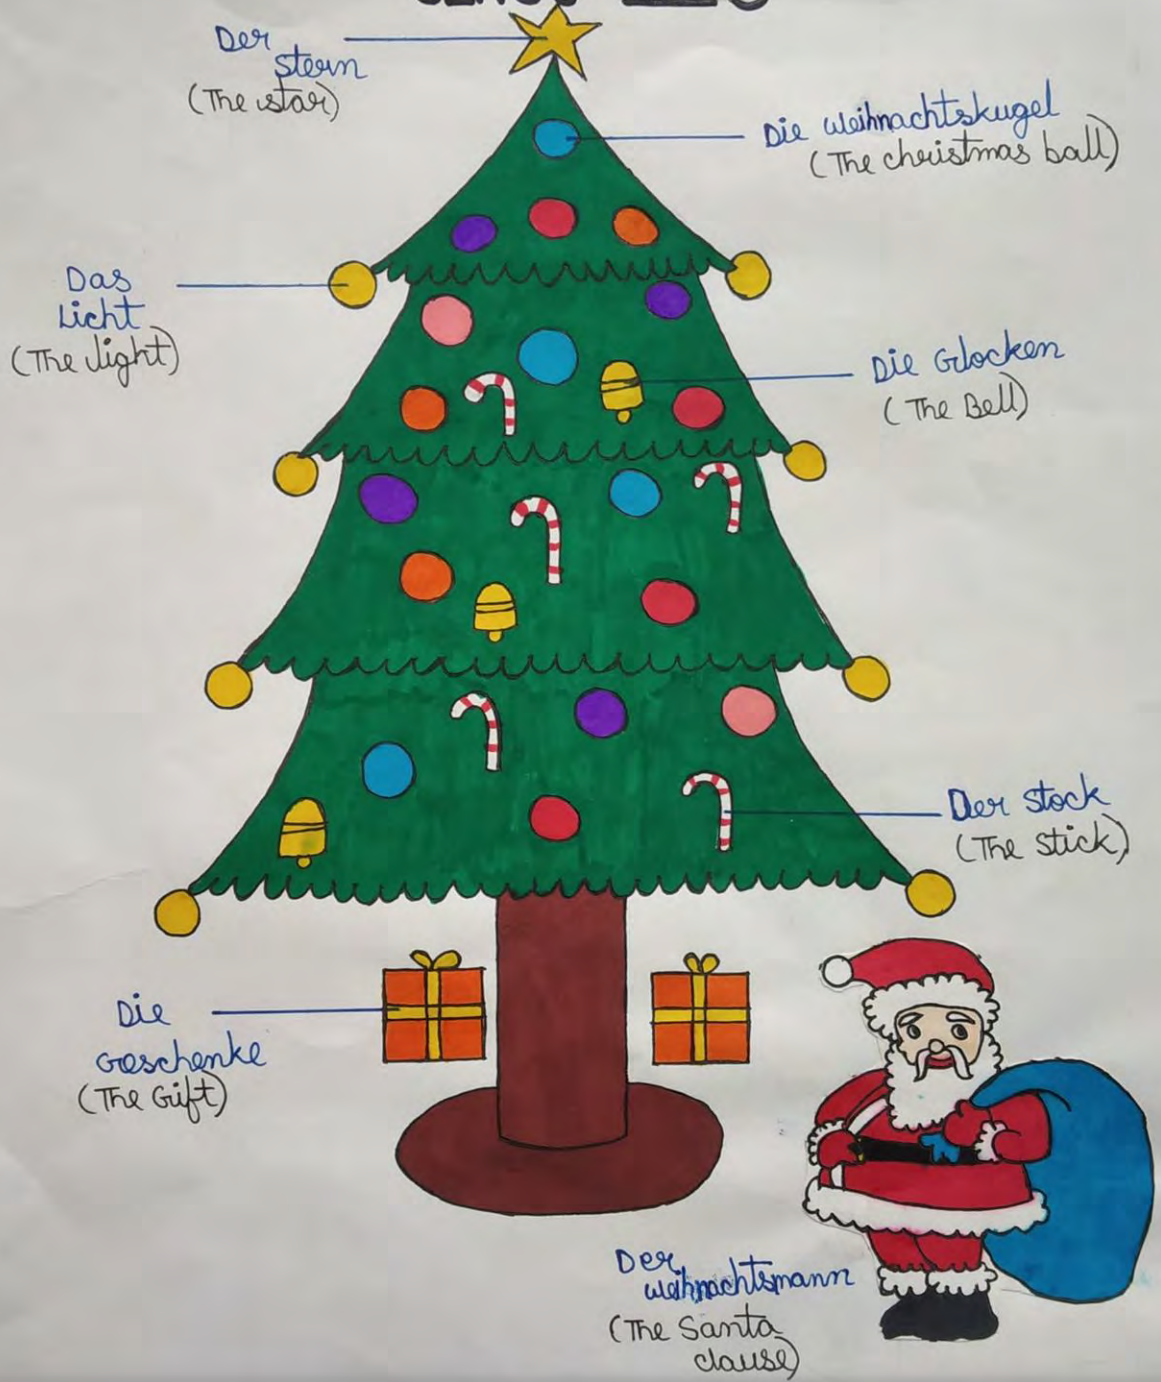 Der
Stern
(The star)
Die Weihnachtskugel
(The christmas ball)
Das
Licht
(The light)
Die Glocken
(The Bell)
Der Stock
(The stick)
Die
Geschenke
(The Gift)
Der
Weihnachtsmann
(The Santa
clause)